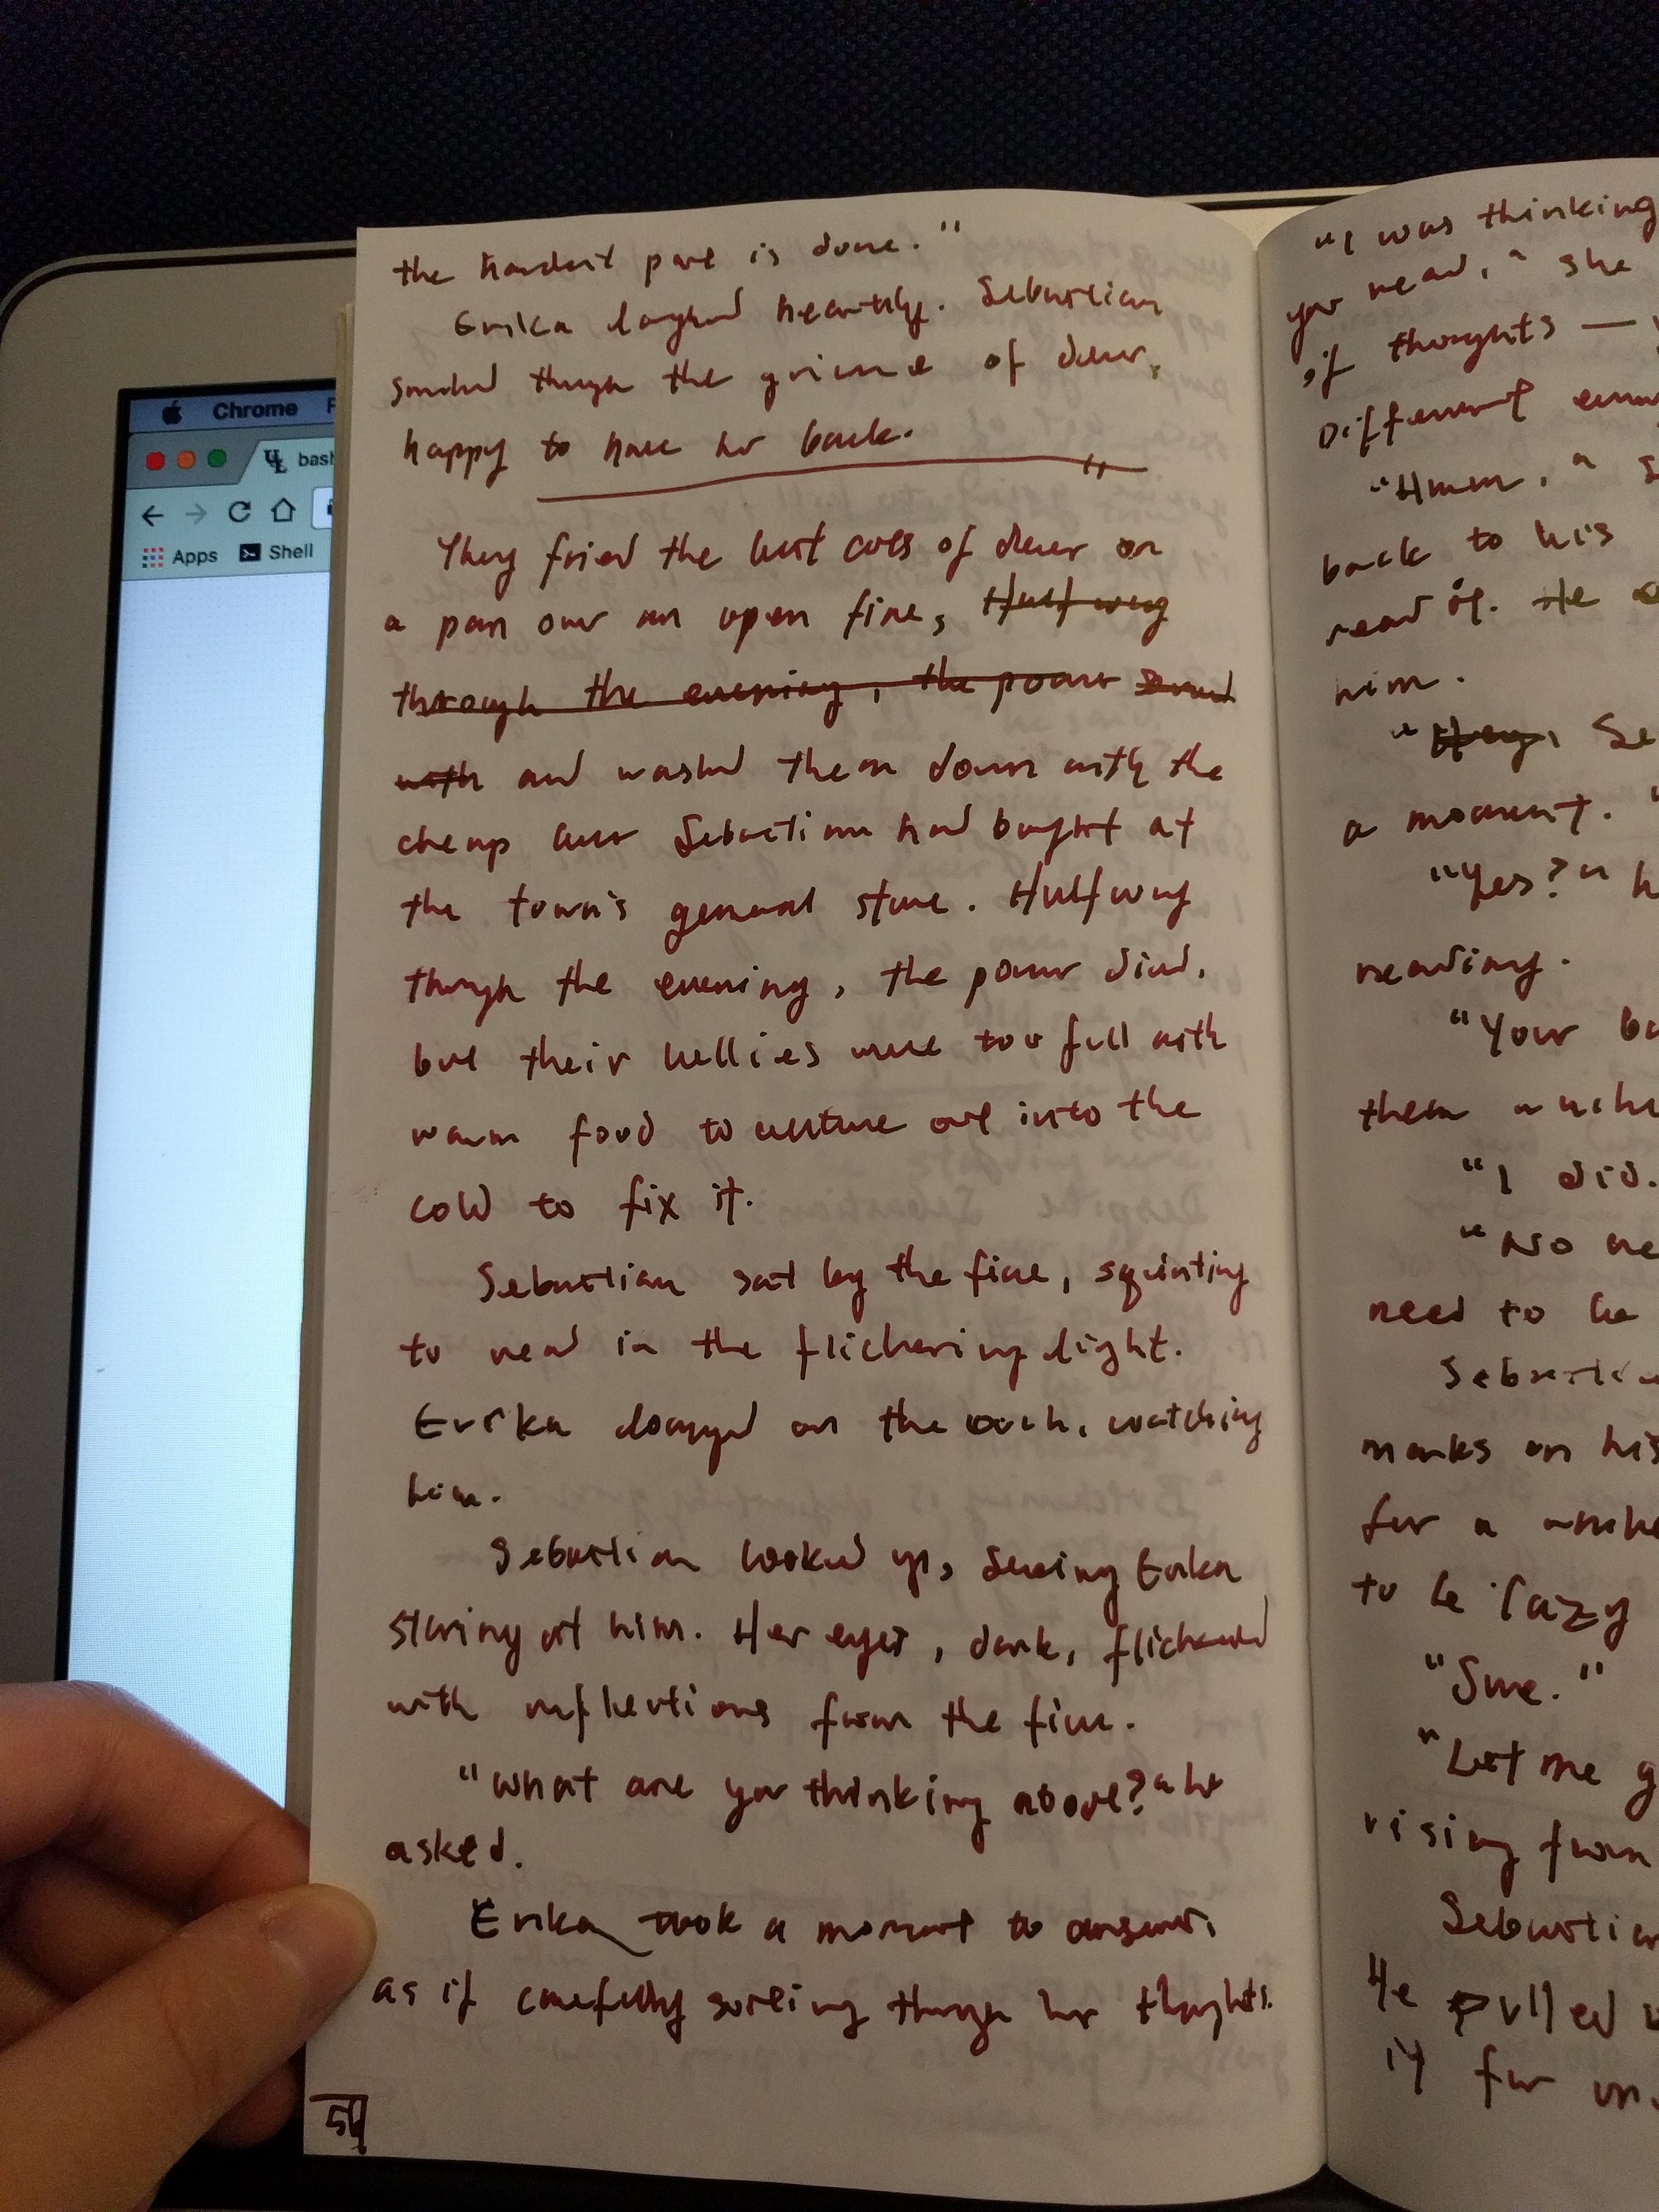 Chrome
bash
Apps Shell
the hardest part is done."
Erika laughed heartily. Sebastian
smiled through the grimace of deer,
happy to have her back.
They fried the best cuts of deer on
a pan over an open fire, Halfway
through the evening, the power
with and washed them down with the
cheap beer Sebastian had bought at
the town's general store. Halfway
through the evening, the power died,
but their bellies were too full with
warm food to venture out into the
cold to fix it.
Sebastian sat by the fire, squinting
to read in the flickering light.
Erika lounged on the couch, watching
him.
Sebastian looked up, seeing Erika
staring at him. Her eyes, dark, flickered
with reflections from the fire.
"What are you thinking about?" he
asked.
Erika took a moment to answer,
as if carefully sorting through her thoughts.
54
"I was thinking
you read," she
of thoughts —
Different
"Hmm,"
back to his
read of. He
him.
"Hey, Se
a moment. "
"Yes?" h
reading.
"Your b
them
"I did.
"No ne
need to be
Sebastia
marks on his
for a
to be lazy
"Sure."
"Let me g
rising from
Sebastian
He pulled
it for